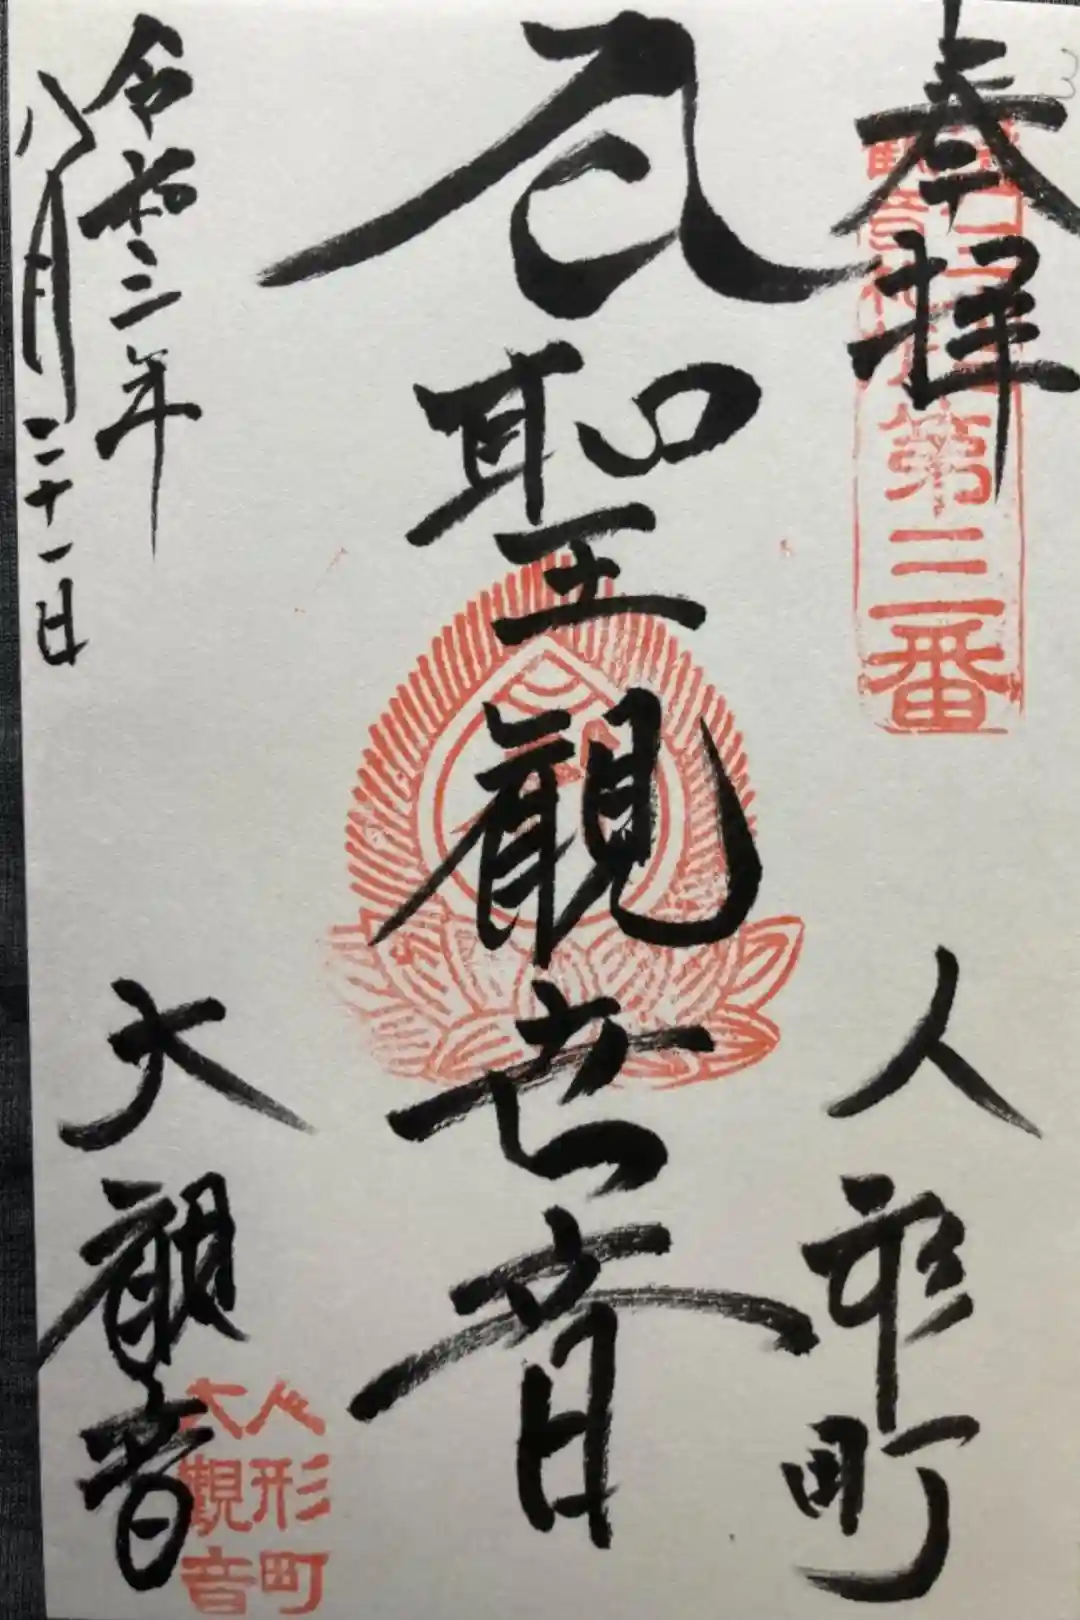 奉拝
第三番
人形町
聖観世音
令和三年
八月二十一日
大観音
人形町
大観音